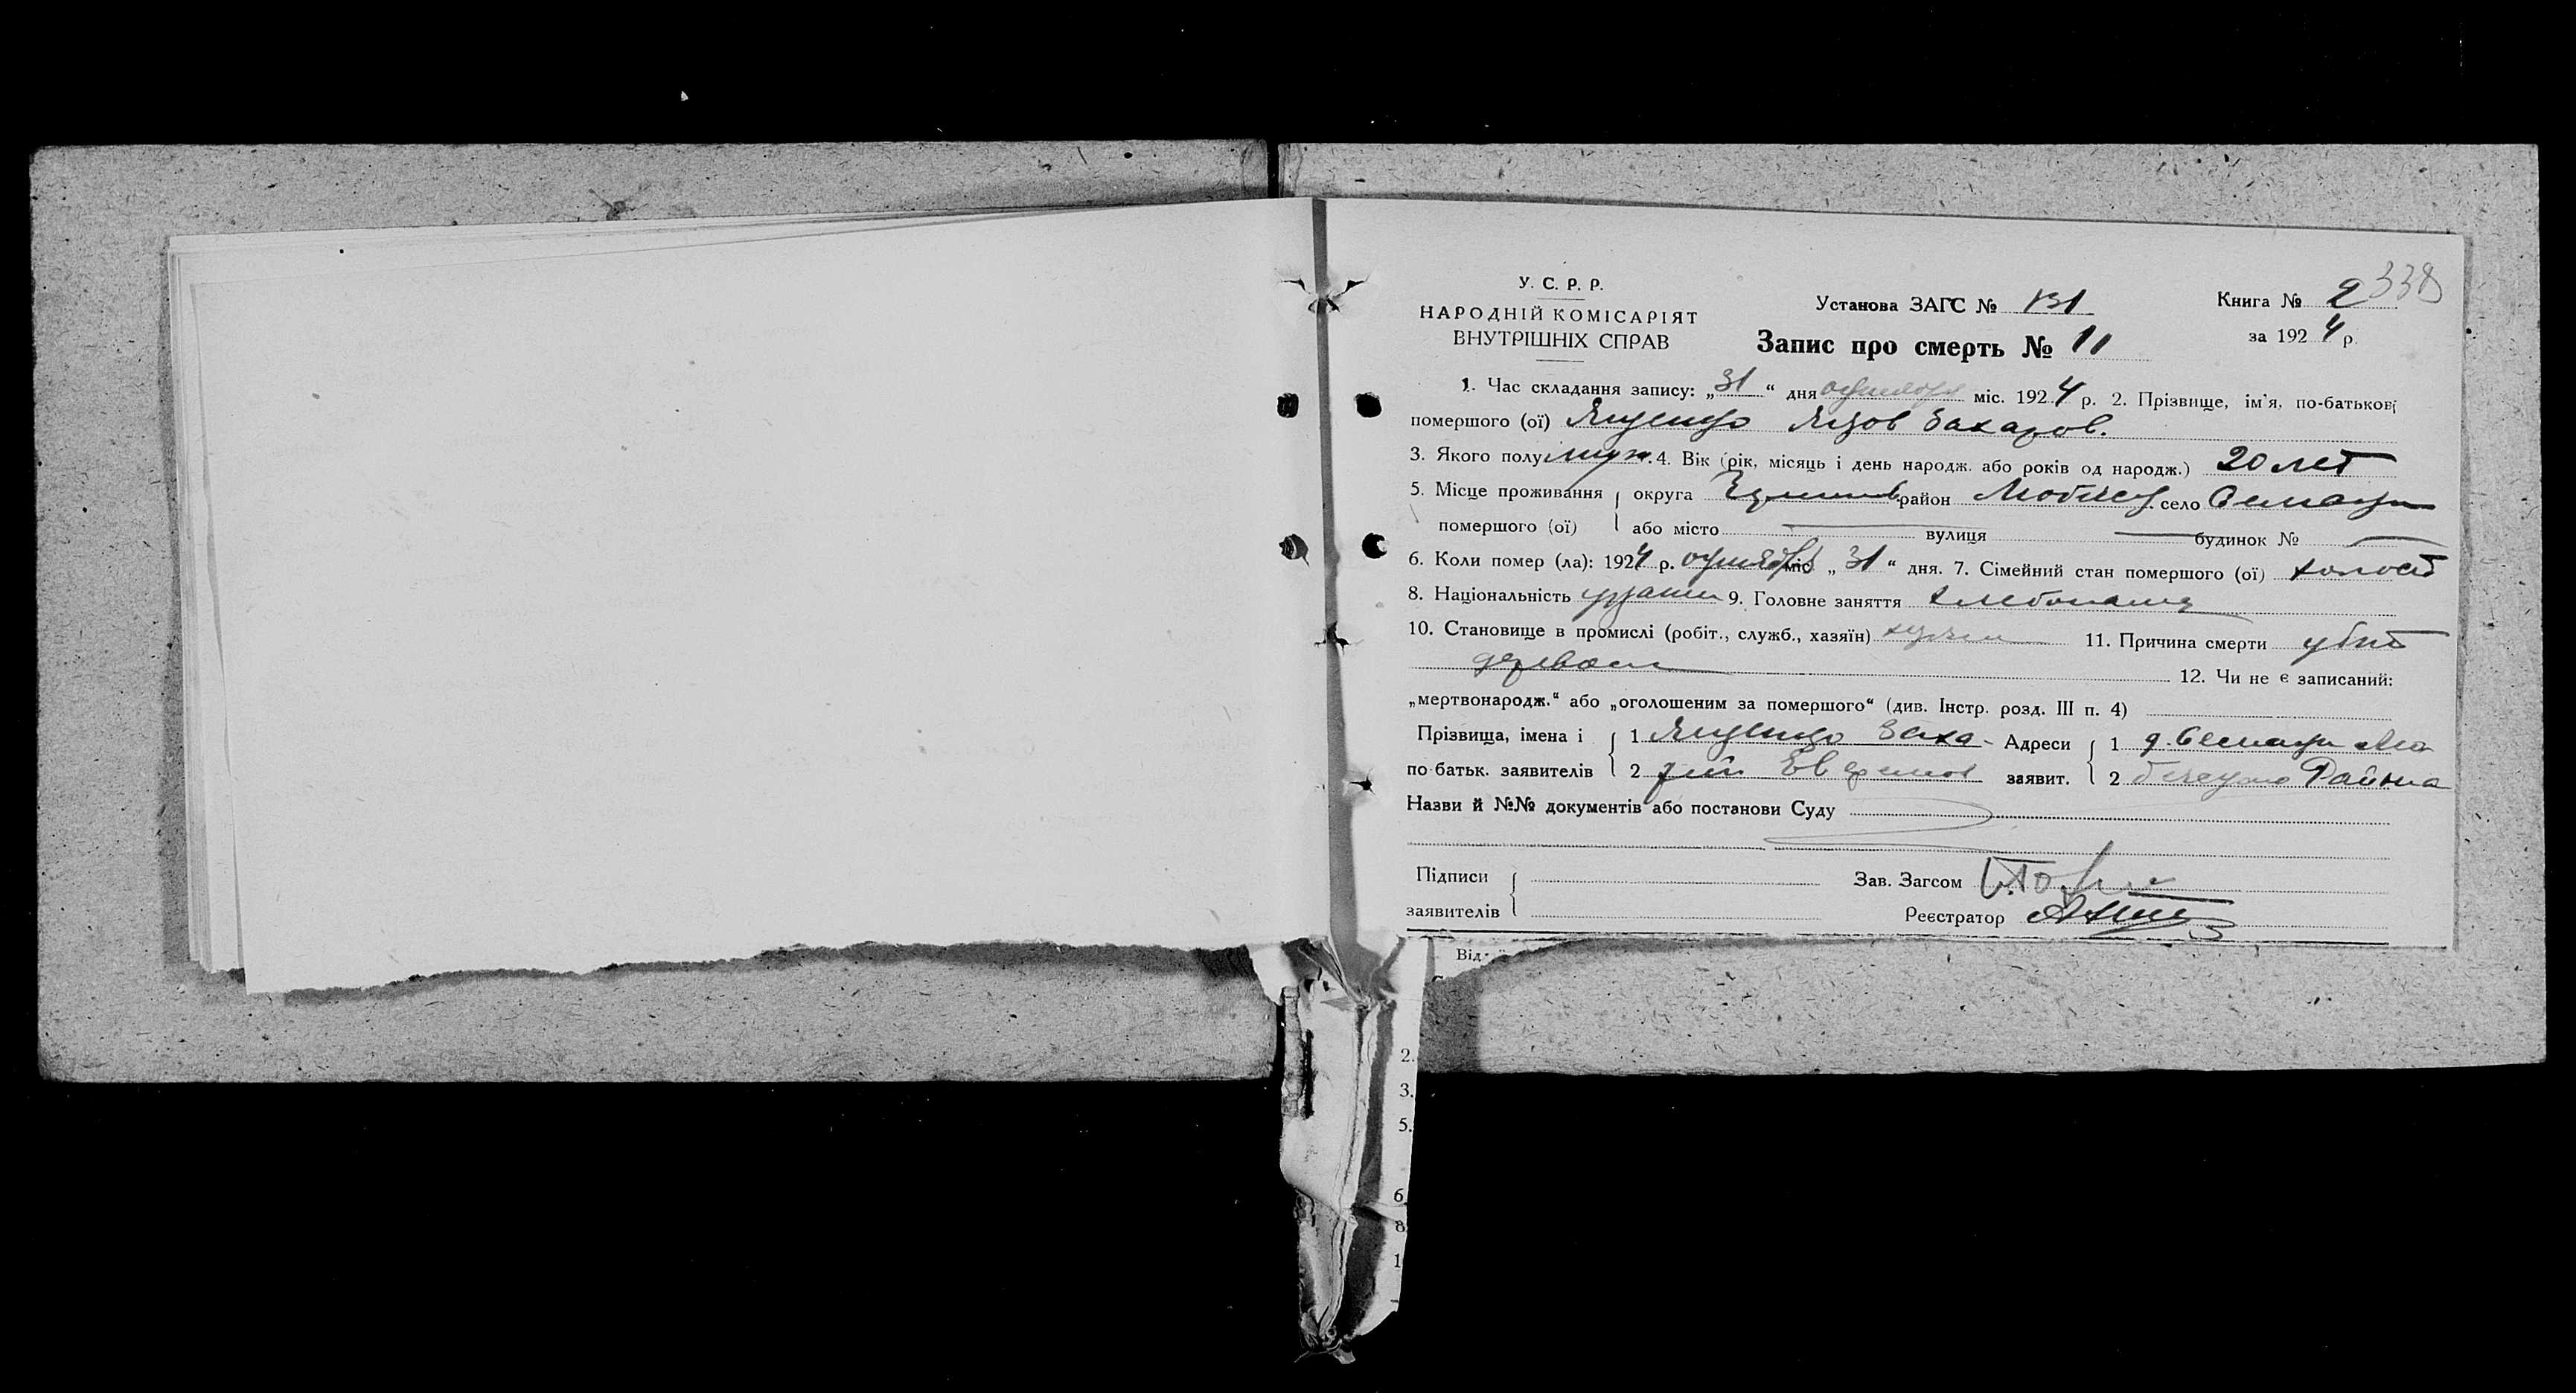 338
У. С. Р. Р.
НАРОДНІЙ КОМІСАРІЯТ
ВНУТРІШНІХ СПРАВ
Установа ЗАГС № 131
Книга № 2
за 1924 р.
Запис про смерть № 11
1. Час складання запису: „31“ дня октября міс. 1924 р. 2. Прізвище, ім'я, по-батькові
помершого (ої) Яценко Яков Захаров.
3. Якого полу муж. 4. Вік (рік, місяць і день народж. або років од народж.) 20 лет
5. Місце проживання округа район Любеч село
помершого (ої) або місто вулиця будинок №
6. Коли помер (ла): 1924 р. октября міс. „31“ дня. 7. Сімейний стан помершого (ої) холост
8. Національність 9. Головне заняття хлебопашец
10. Становище в промислі (робіт., служб., хазяїн) 11. Причина смерти убит
деревом
12. Чи не є записаний:
„мертвонародж.“ або „оголошеним за помершого“ (див. Інстр. розд. III п. 4)
Прізвища, імена і 1 Яценко Заха- Адреси 1
по батьк. заявителів 2 рий Ефремов заявит. 2 Района
Назви й №№ документів або постанови Суду
Підписи
заявителів
Зав. Загсом
Реєстратор
Від
2.
3.
5.
6
8
1